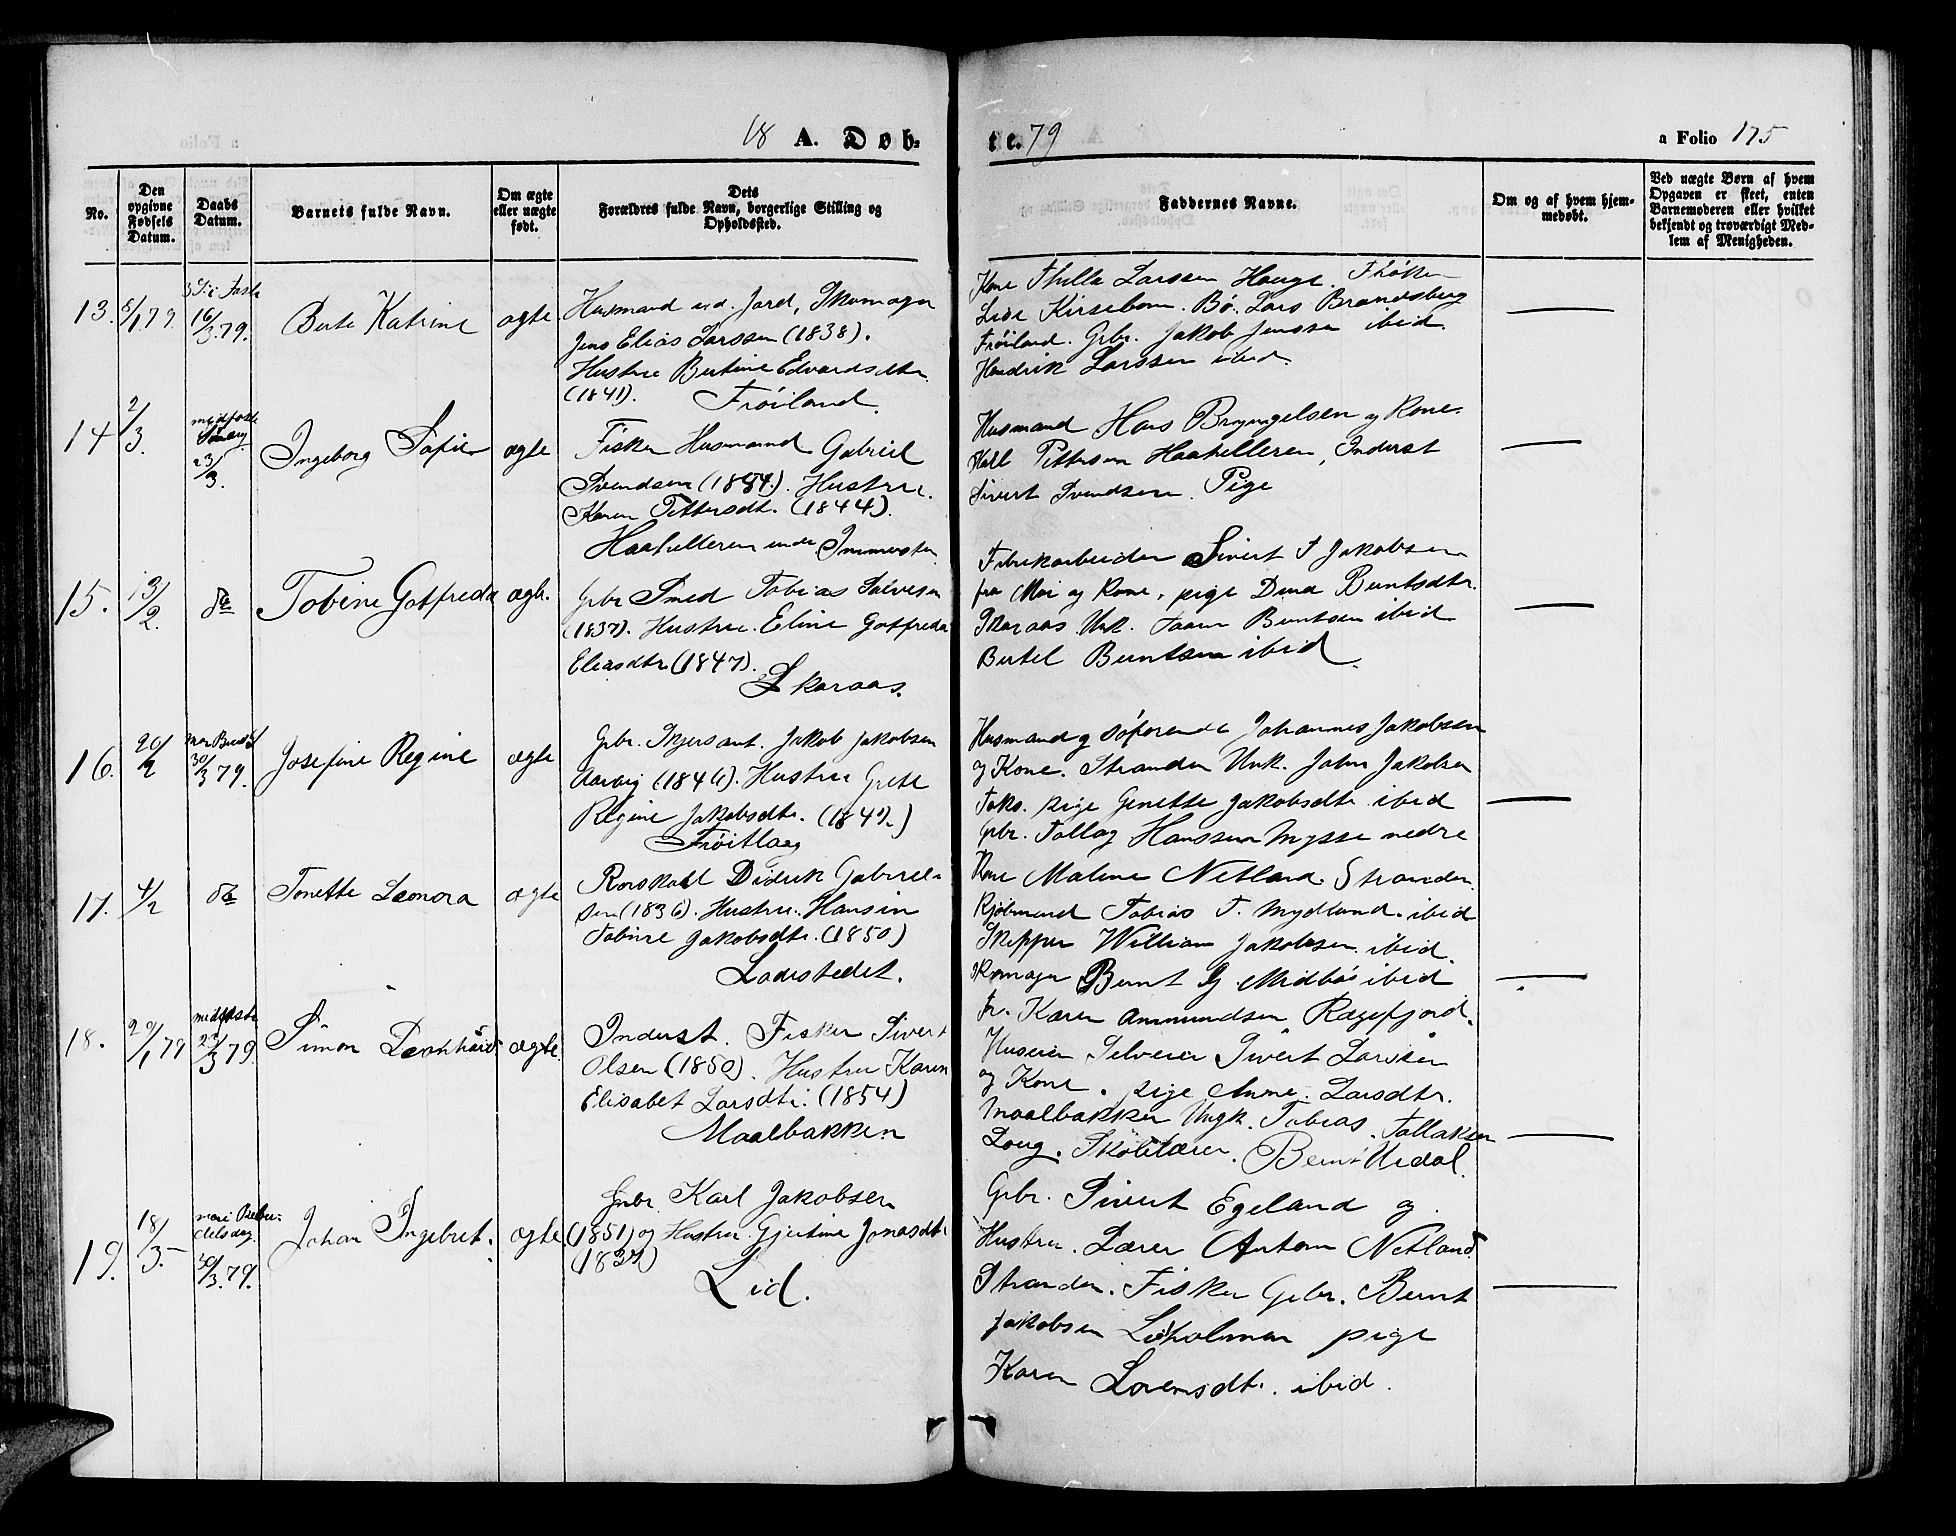 18 A. Døb-
te. 79
a Folio 175
No.
Den opgivne Fødsels Datum.
Daabs Datum.
Barnets fulde Navn.
Om ægte eller uægte født.
Dets Forældres fulde Navn, borgerlige Stilling og Opholdssted.
Faddernes Navne.
Om og af hvem hjemmedøbt.
Ved uægte Børn af hvem Opgaven er skeet, enten Barnemoderen eller hvilket bekjendt og troværdigt Medlem af Menigheden.
13. 8/1 79. 3 S. i Faste 16/3 79. Berte Katrine ægte
Husmand ud. Jord, Skomager
Jens Elias Larssen (1838).
Hustru Bertine Edvardsdtr.
(1841). Frøiland.
Kone Thilla Larssen Hauge. Frøken
Lise Kirsebom. Bø. Lars Brandsberg
Frøiland. Grbr. Jakob Jenssen ibid.
Hendrik Larssen ibid.
14 2/3. midfaste Søndag 23/3. Ingeborg Sofie ægte
Fisker Husmand Gabriel
Svendsen (1854). Hustru.
Karen Pettersdt. (1844).
Haahelleren indr Immersten
Husmand Hans Bryngelsen og Kone.
Karl Pettersen Haahelleren, Inderst
Sivert Svendsen. Pige
15. 13/2. do Tobine Gotfreda ægte.
Grbr Smed Tobias Salvesen
(1837). Hustru. Eline Gotfreda
Eliasdtr (1847).
Skaraas.
Fabrikarbeider Sivert T Jakobsen
fra Moi og Kone, pige Dina Berntsdtr.
Skaraas. Unk. Faan Berntsen ibid
Bertel Berntsen ibid.
16. 20/2 Mar Budsd 30/3 79. Josefine Regine ægte
Grbr. Skjersant. Jakob Jakobsen
Aarvig (1846). Hustru Grete
Regine Jakobsdtr. (1847.)
Frøitlaag
Husmand og søfarende Johannes Jakobsen
og Kone. Stranden Unk. John Jakobsen
Foks. pige Genette Jakobsdtr ibid
Grbr. Tollag Hanssen Mysse nedre
17. 4/2 do Tonette Leonora ægte
Rorskarl Didrik Gabriel-
sen (1836). Hustru. Hansine
Tobine Jakobsdtr. (1850)
Ladestedet.
Kone Maline Netland. Stranden.
Kjøbmand Tobias T. Mydland. ibid
Skipper William Jakobsen. ibid.
Skomager Bernt G Midbøs ibid
Fr. Karen Ammundsen Rægefjord.
18. 20/1 79 midfaste 23/3 79. Simon Leonhard ægte.
Inderst. Fisker Sivert
Olsen (1850). Hustru Karen
Elisabet Larsdtr. (1854)
Maalbakken
Huseier Selveier Sivert Larssen
og Kone. pige Anne. Larsdtr.
Maalbakken Ungk. Tobias. Tollaksen
Loug. Skolelærer. Bernt Urdal.
19. 18/3 mari Bebu-delsdag. 30/3 79. Johan Ingebret. ægte
Grbr Karl Jakobsen
(1851) og Hustru. Gjertine Jonasdtr
(1837)
Lid.
Grbr. Sivert Egeland og
Hustru. Lærer Anton Netland.
Stranden. Fisker Grbr. Bernt
Jakobsen Lidholmen pige
Karen Lorensdt. ibid.